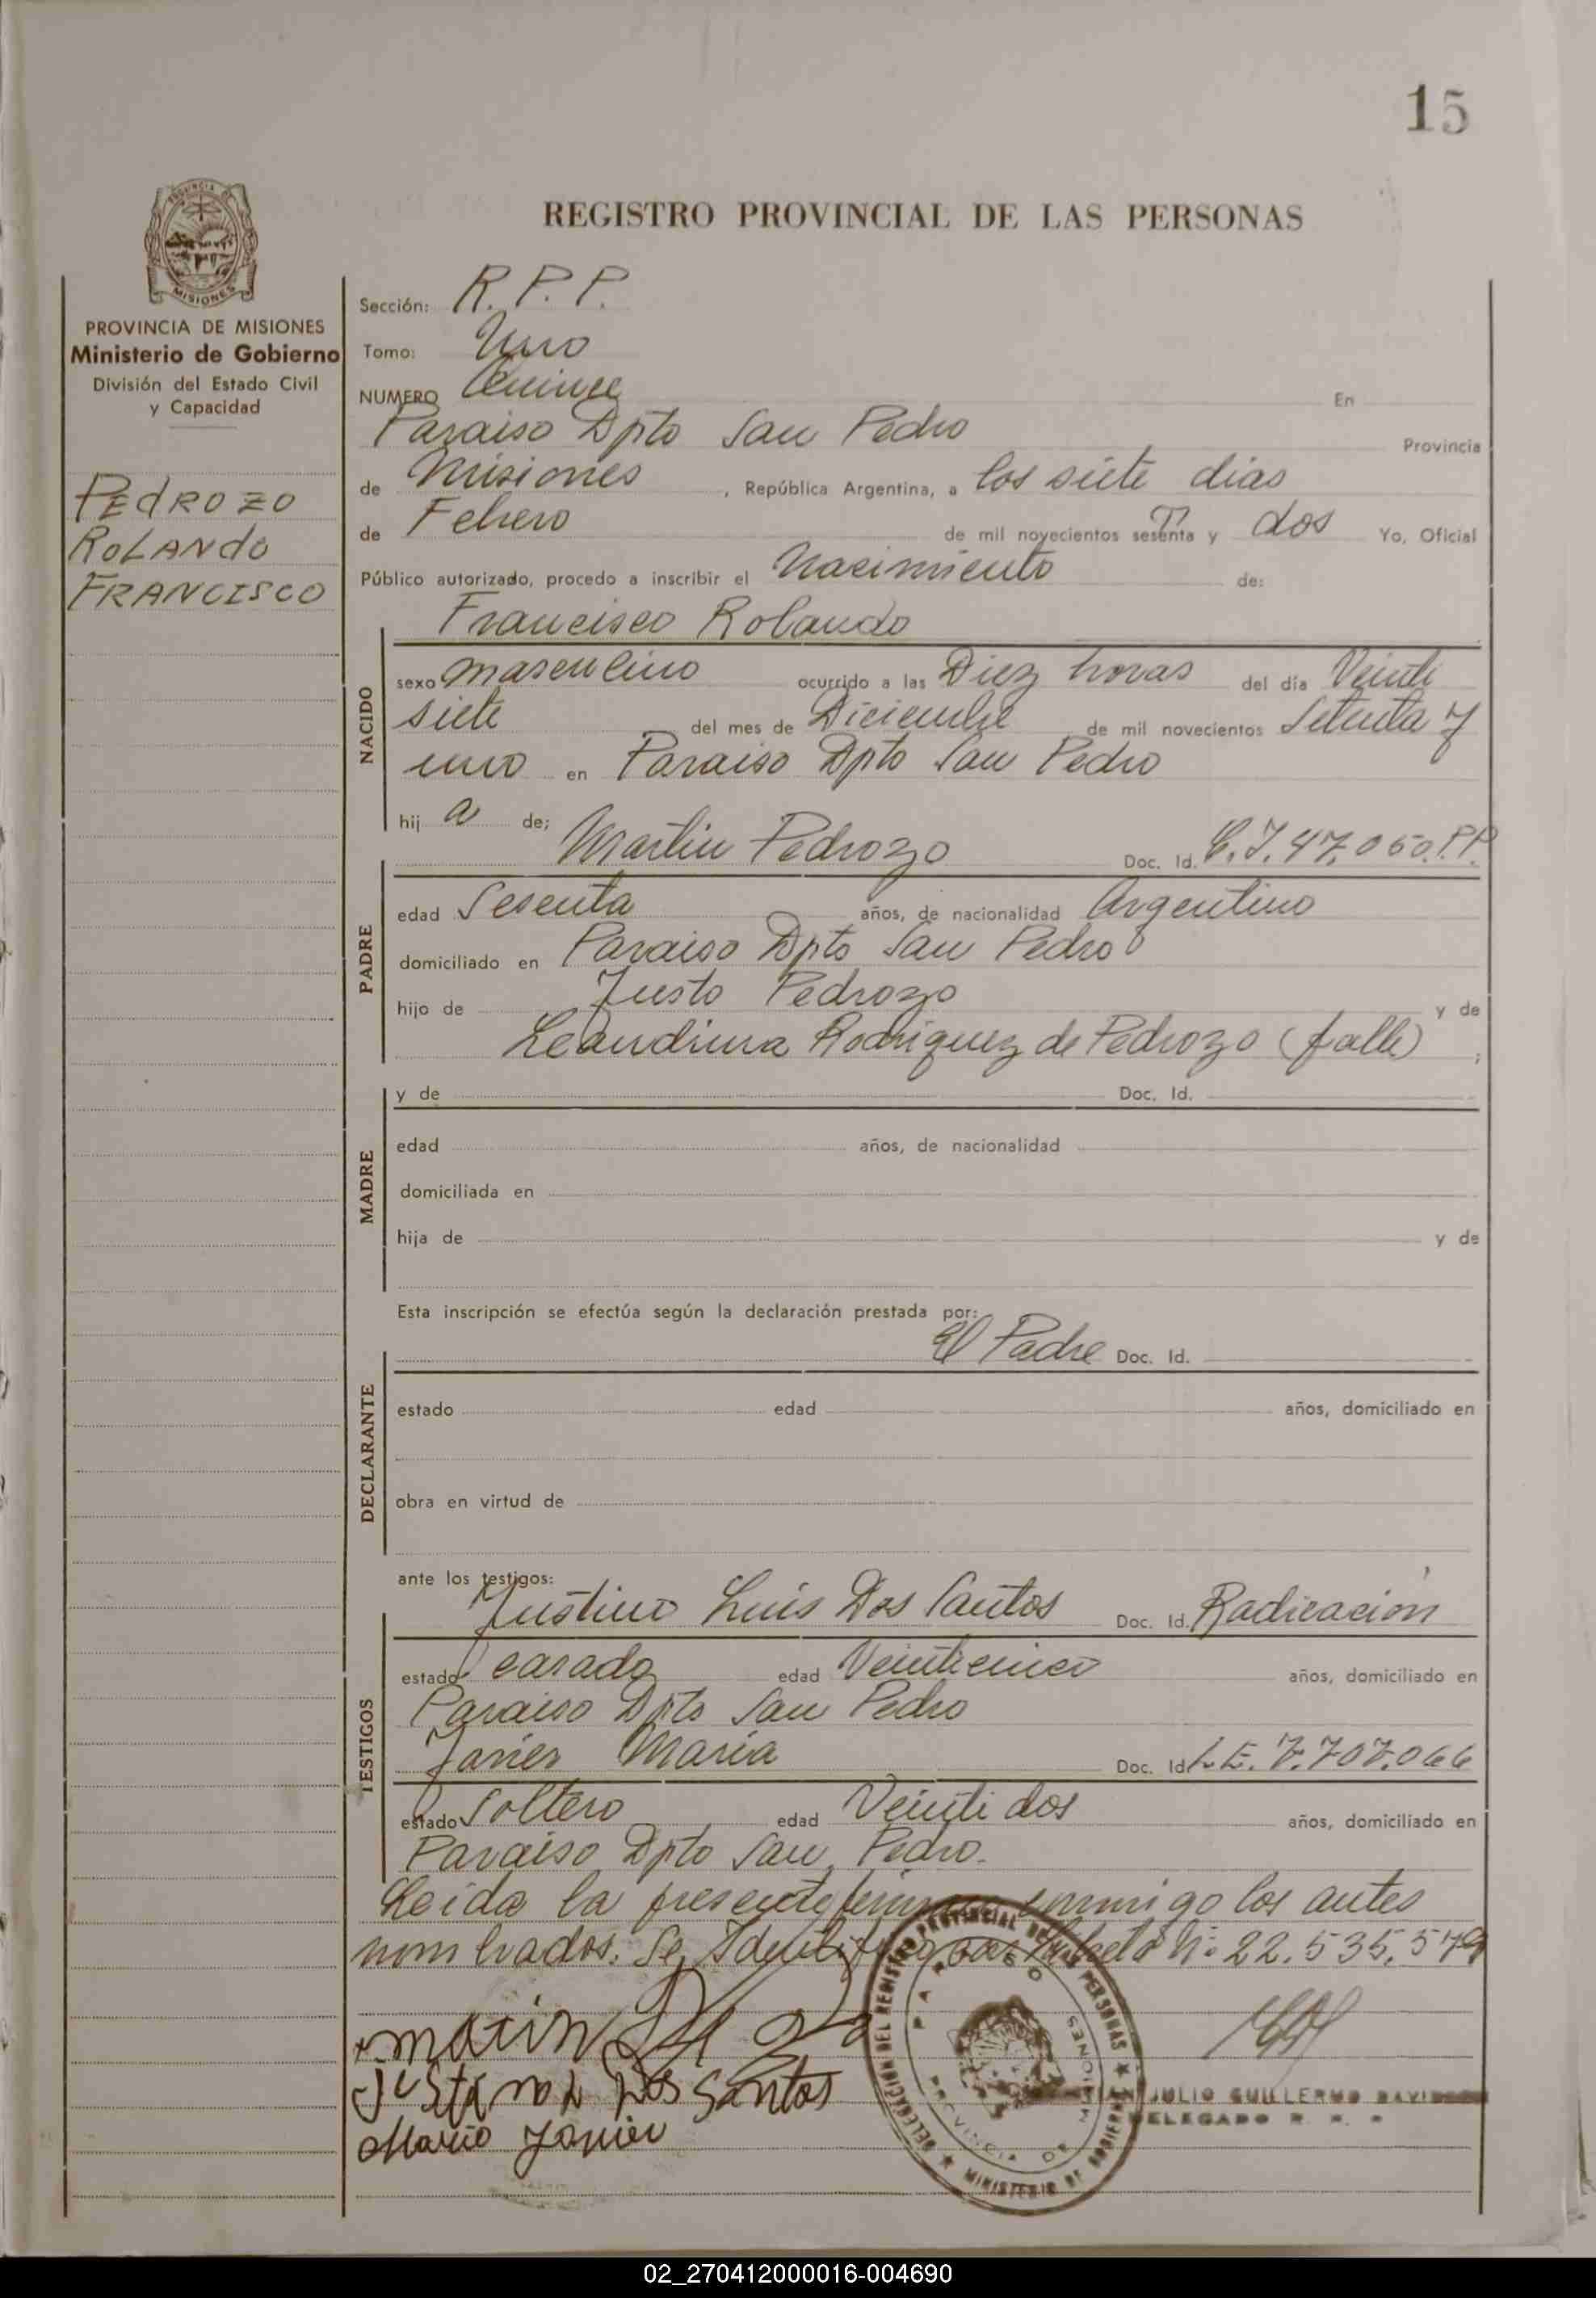 15
REGISTRO PROVINCIAL DE LAS PERSONAS
PROVINCIA
MISIONES
PROVINCIA DE MISIONES
Ministerio de Gobierno
División del Estado Civil
y Capacidad
PEDROZO
ROLANDO
FRANCISCO
Sección: R. P. P.
Tomo: Uno
NUMERO Quince En
Paraiso Dpto San Pedro Provincia
de Misiones, República Argentina, a los siete dias
de Febrero de mil novecientos sesenta y dos Yo, Oficial
Público autorizado, procedo a inscribir el Nacimiento de:
Francisco Rolando
NACIDO
sexo masculino ocurrido a las Diez horas del día Veinti
siete del mes de Diciembre de mil novecientos Setenta y
uno en Paraiso Dpto San Pedro
hij a de;
Martin Pedrozo Doc. Id. C.I. 47.060.P.P.
PADRE
edad Sesenta años, de nacionalidad Argentino
domiciliado en Paraiso Dpto San Pedro
hijo de Justo Pedrozo y de
Leandrina Rodriguez de Pedrozo (falle) ;
MADRE
y de Doc. Id.
edad años, de nacionalidad
domiciliada en
hija de y de
Esta inscripción se efectúa según la declaración prestada por:
El Padre Doc. Id.
DECLARANTE
estado edad años, domiciliado en
obra en virtud de
ante los testigos:
Justino Luis Dos Santos Doc. Id. Radicación
TESTIGOS
estado casado edad Veinticinco años, domiciliado en
Paraiso Dpto San Pedro
Javier Maria Doc. Id L.E. 7.707.066
estado Soltero edad Veinti dos años, domiciliado en
Paraiso Dpto San Pedro.
Leida la presente firman conmigo los antes
nombrados. Se Identifico con Libreta Nº 22.535.579
Justino L Dos Santos
Mario Javier
DELEGACION DEL REGISTRO PROVINCIAL DE LAS PERSONAS
MINISTERIO DE GOBIERNO
PARAISO
PROVINCIA DE MISIONES
JULIO GUILLERMO
DELEGADO R.
02_270412000016-004690